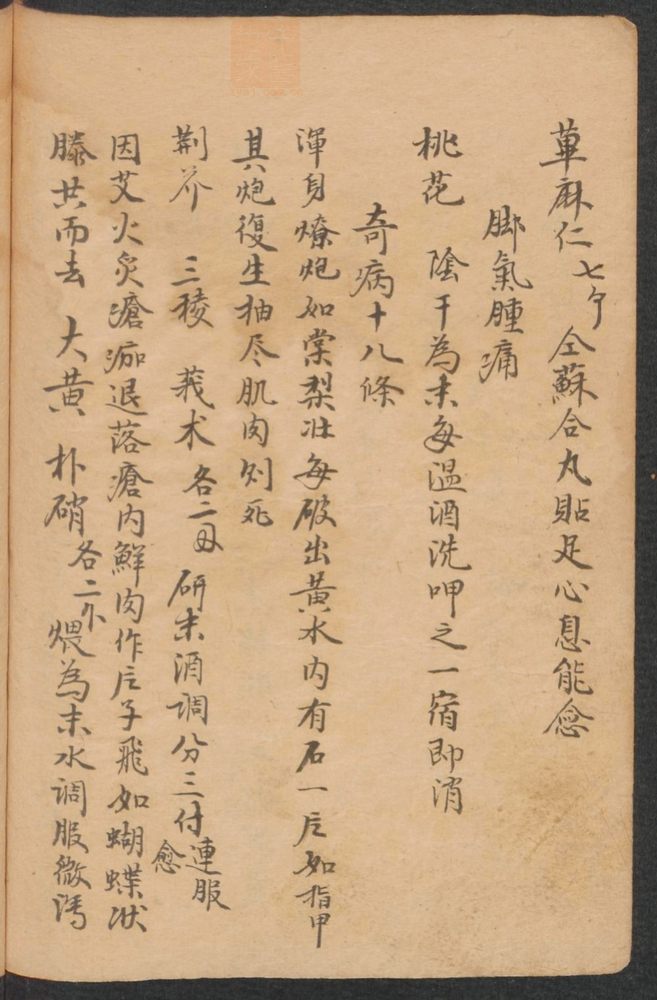 萆麻仁 七个 仝蘇合丸貼足心息能愈
脚氣腫痛
桃花 陰干為末每温酒洗呷之一宿即消
奇病十八條
渾身燎炮如棠梨壯每破出黃水内有石一片如指甲
其炮復生抽尽肌肉则死
荆芥 三稜 莪术 各二 研末酒調分三付連服愈
因艾火灸瘡痂退落瘡内鮮肉作片子飛如蝴蝶狀
滕共而去 大黄 朴硝 各二 煨為末水調服微